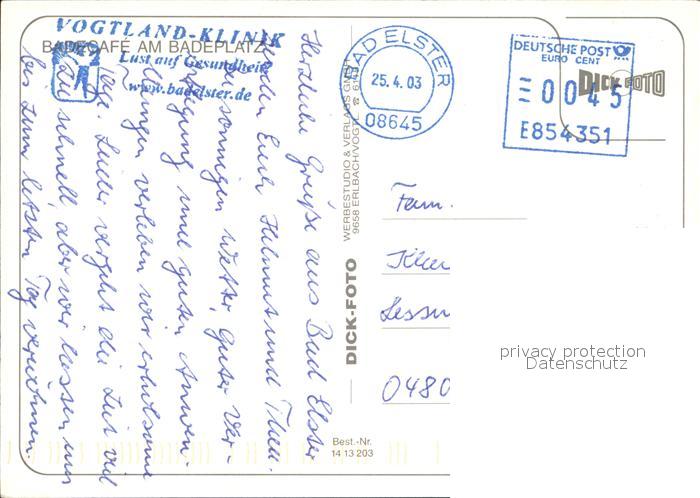 VOGTLAND-KLINIK
BADECAFÉ AM BADEPLATZ
Lust auf Gesundheit
www.badelster.de
BAD ELSTER
25.4.03
08645
DEUTSCHE POST
EURO CENT
0045
E854351
DICK-FOTO
Herzliche Grüße aus Bad Elster
Euch Helmut und
sonnigen Wetter, guter Ver-
und guten Anwen-
verleben wir erholsame
Tage. Leider vergeht die Zeit viel
zu schnell, aber wir lassen uns
bis zum letzten Tag verwöhnen.
DICK-FOTO
WERBESTUDIO & VERLAGS GMBH
9658 ERLBACH/VOGTL.
Fam.
Lessin
0480
Best.-Nr.
14 13 203
privacy protection
Datenschutz